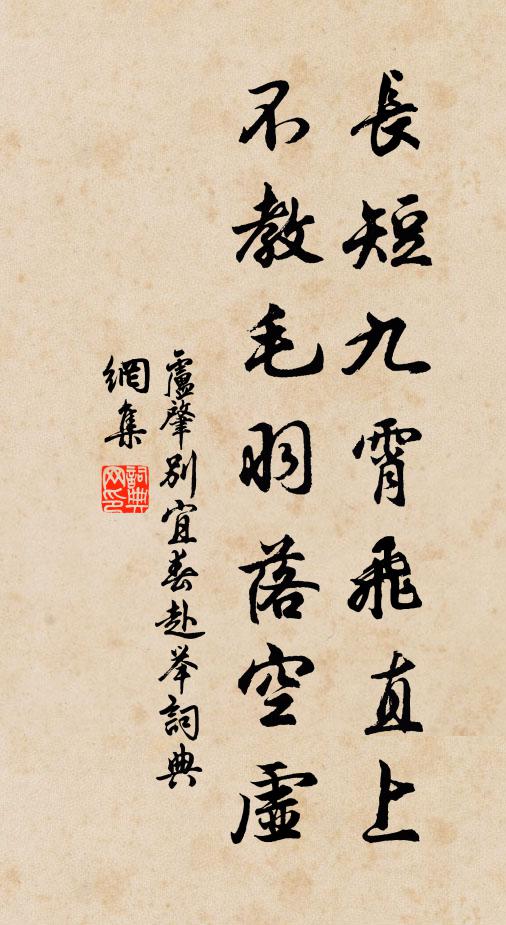 長短九霄飛直上
不教毛羽落空虛
盧肇別宜春赴举詞典
網集
詞典
网印